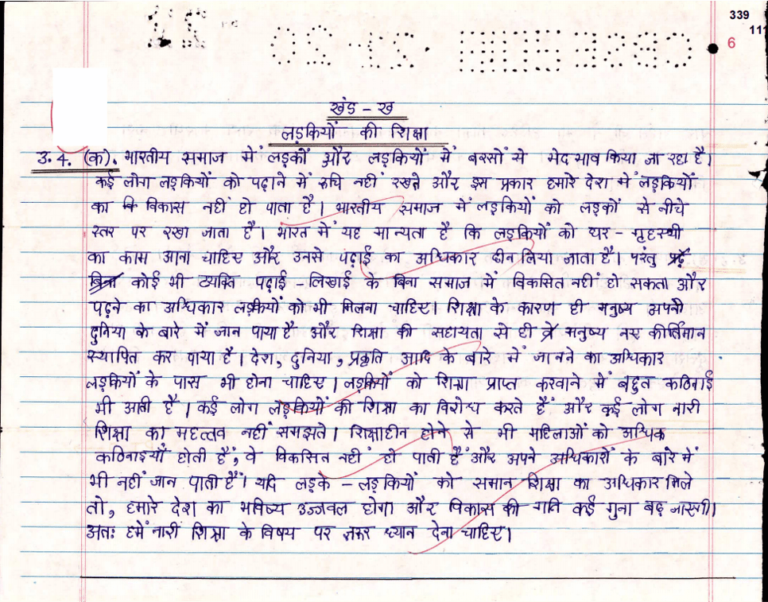 339
111
6
खंड - ख
लड़कियों की शिक्षा
उ.4. (क). भारतीय समाज में लड़कों और लड़कियों में बरसों से भेद भाव किया जा रहा है।
कई लोग लड़कियों को पढ़ाने में रुचि नहीं रखते और इस प्रकार हमारे देश में लड़कियों
का वि विकास नहीं हो पाता है। भारतीय समाज में लड़कियों को लड़कों से नीचे
स्तर पर रखा जाता है। भारत में यह मान्यता है कि लड़कियों को घर - गृहस्थी
का काम आना चाहिए और उनसे पढ़ाई का अधिकार छीन लिया जाता है। परंतु
बिना कोई भी व्यक्ति पढ़ाई - लिखाई के बिना समाज में विकसित नहीं हो सकता और
पढ़ने का अधिकार लड़कियों को भी मिलना चाहिए। शिक्षा के कारण ही मनुष्य अपनी
दुनिया के बारे में जान पाया है और शिक्षा की सहायता से ही मनुष्य नए कीर्तिमान
स्थापित कर पाया है। देश, दुनिया, प्रकृति आदि के बारे में जानने का अधिकार
लड़कियों के पास भी होना चाहिए। लड़कियों को शिक्षा प्राप्त करवाने में बहुत कठिनाई
भी आती है। कई लोग लड़कियों की शिक्षा का विरोध करते हैं और कई लोग नारी
शिक्षा का महत्तव नहीं समझते। शिक्षाहीन होने से भी महिलाओं को अधिक
कठिनाइयाँ होती हैं, वे विकसित नहीं हो पाती हैं और अपने अधिकारों के बारे में
भी नहीं जान पाती हैं। यदि लड़के - लड़कियों को समान शिक्षा का अधिकार मिले
तो, हमारे देश का भविष्य उज्जवल होगा और विकास की गति कई गुना बढ़ जाएगी।
अतः हमें नारी शिक्षा के विषय पर ज़रूर ध्यान देना चाहिए।